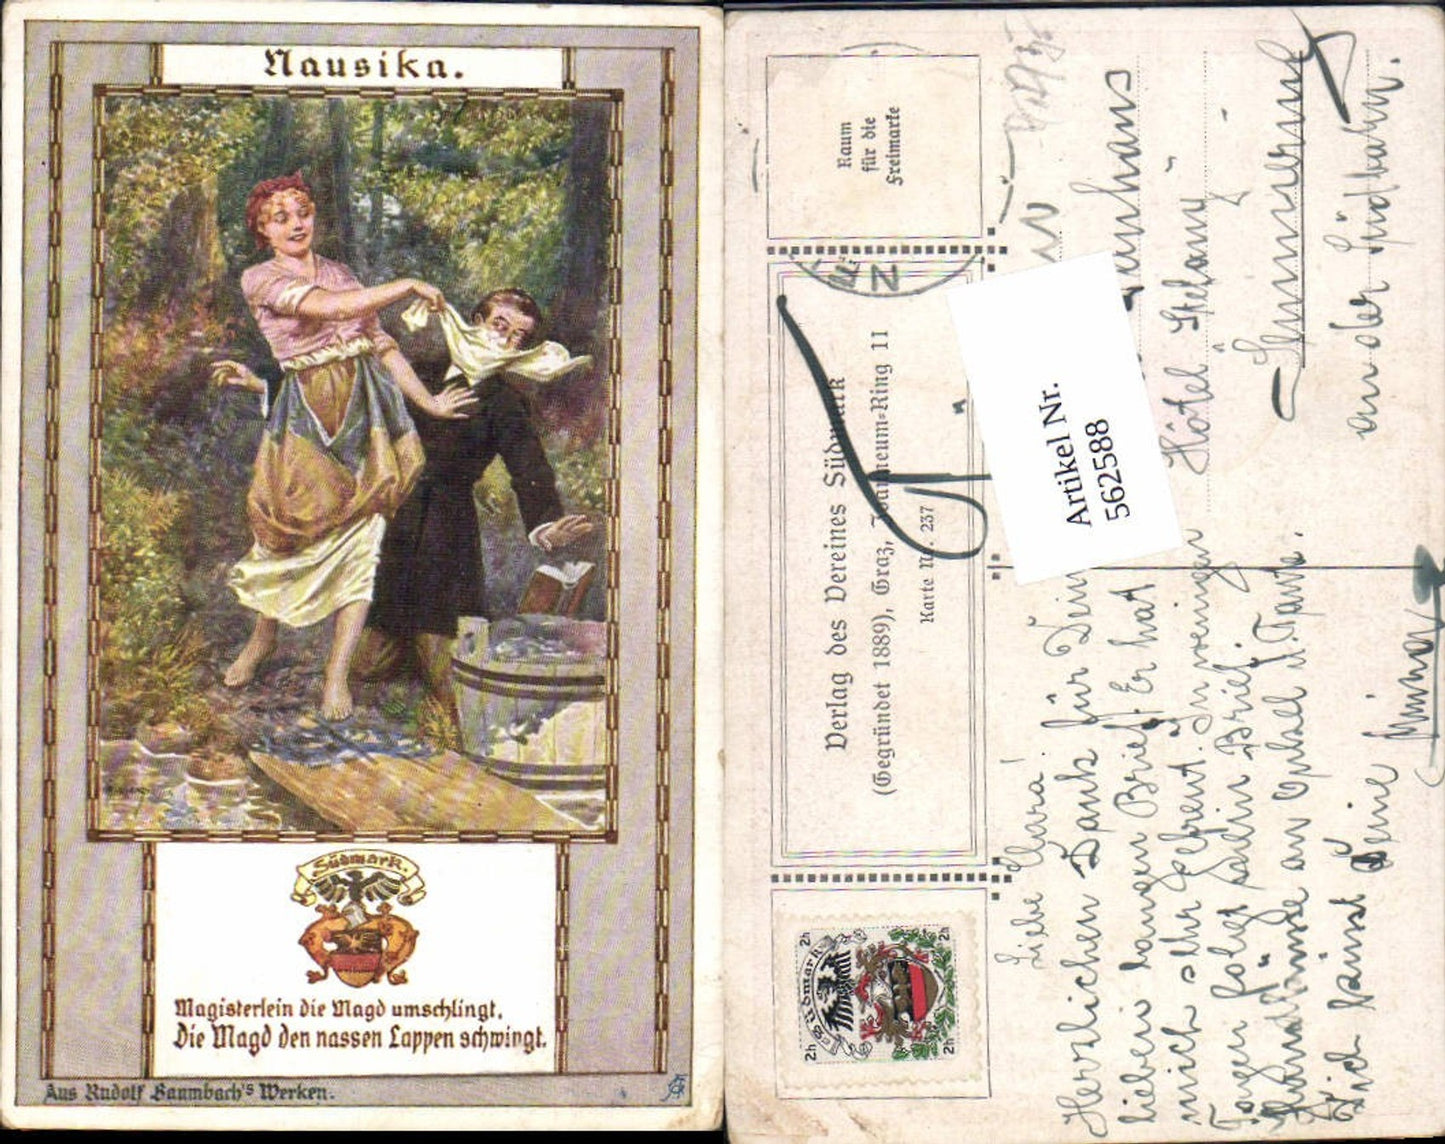 Nausika.
Südmark.
Magisterlein die Magd umschlingt,
Die Magd den nassen Lappen schwingt.
Aus Rudolf Baumbach's Werken.
Raum
für die
Freimarke
Verlag des Vereines Südmark
(Gegründet 1889), Graz, Joanneum-Ring 11
Karte Nr. 237
2h 2h
Südmark
2h 2h
Artikel Nr.
562588
Hôtel Stefanie
an der Südbahn.
Liebe Clara!
Herzlichen Dank für Dein
lieben langen Brief. Er hat
mich sehr gefreut. In wenigen
Tagen folgt ein Brief.
an Onkel u. Tante.
Dich küsst Deine